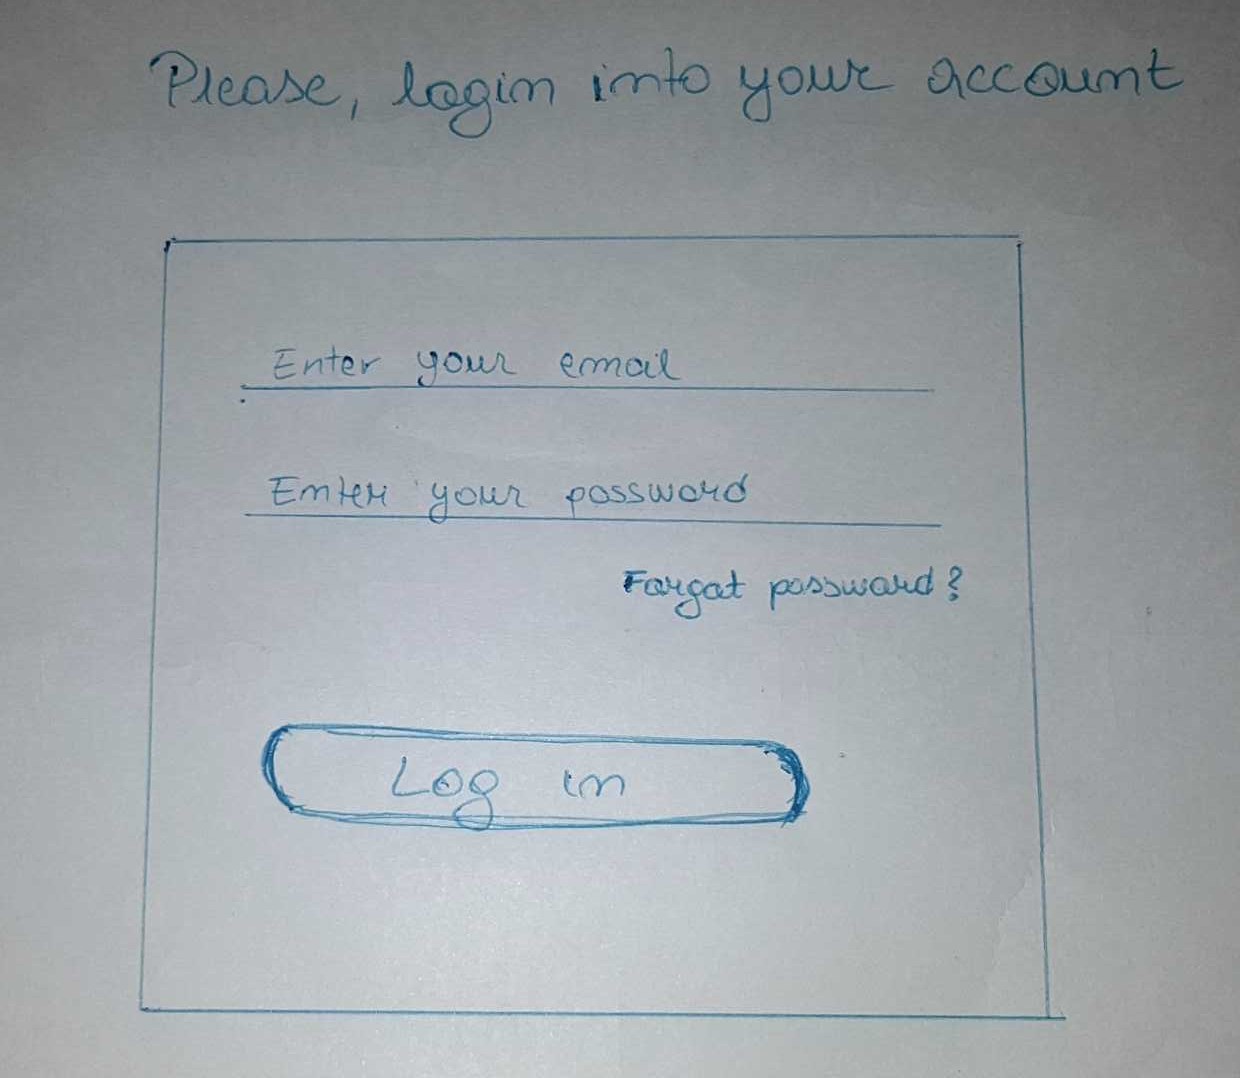 Please, login into your account
Enter your email
Enter your password
Forgot password?
Log in